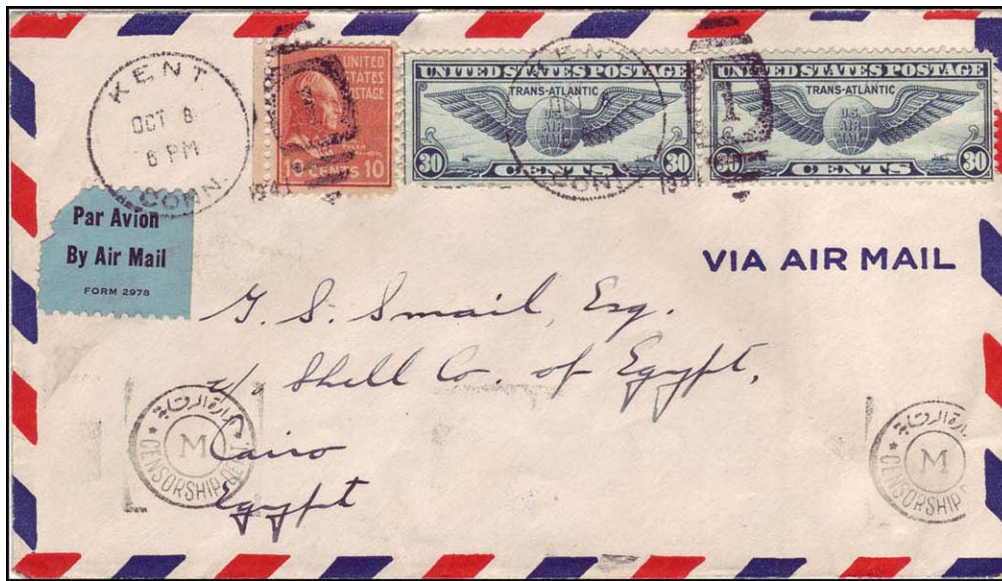 KENT
OCT 8
6 PM
CONN.
1941
UNITED
STATES
POSTAGE
TYLER
10 CENTS 10
UNITED STATES POSTAGE
TRANS-ATLANTIC
U.S.
AIR
MAIL
30 CENTS 30
KENT
CONN.
UNITED STATES POSTAGE
TRANS-ATLANTIC
U.S.
AIR
MAIL
30 CENTS 30
1
1
1941
Par Avion
By Air Mail
FORM 2978
VIA AIR MAIL
G. S. Smail, Esq.
c/o Shell Co. of Egypt,
Cairo
Egypt
ادارة الرقابة
M
CENSORSHIP DE
ادارة الرقابة
M
CENSORSHIP